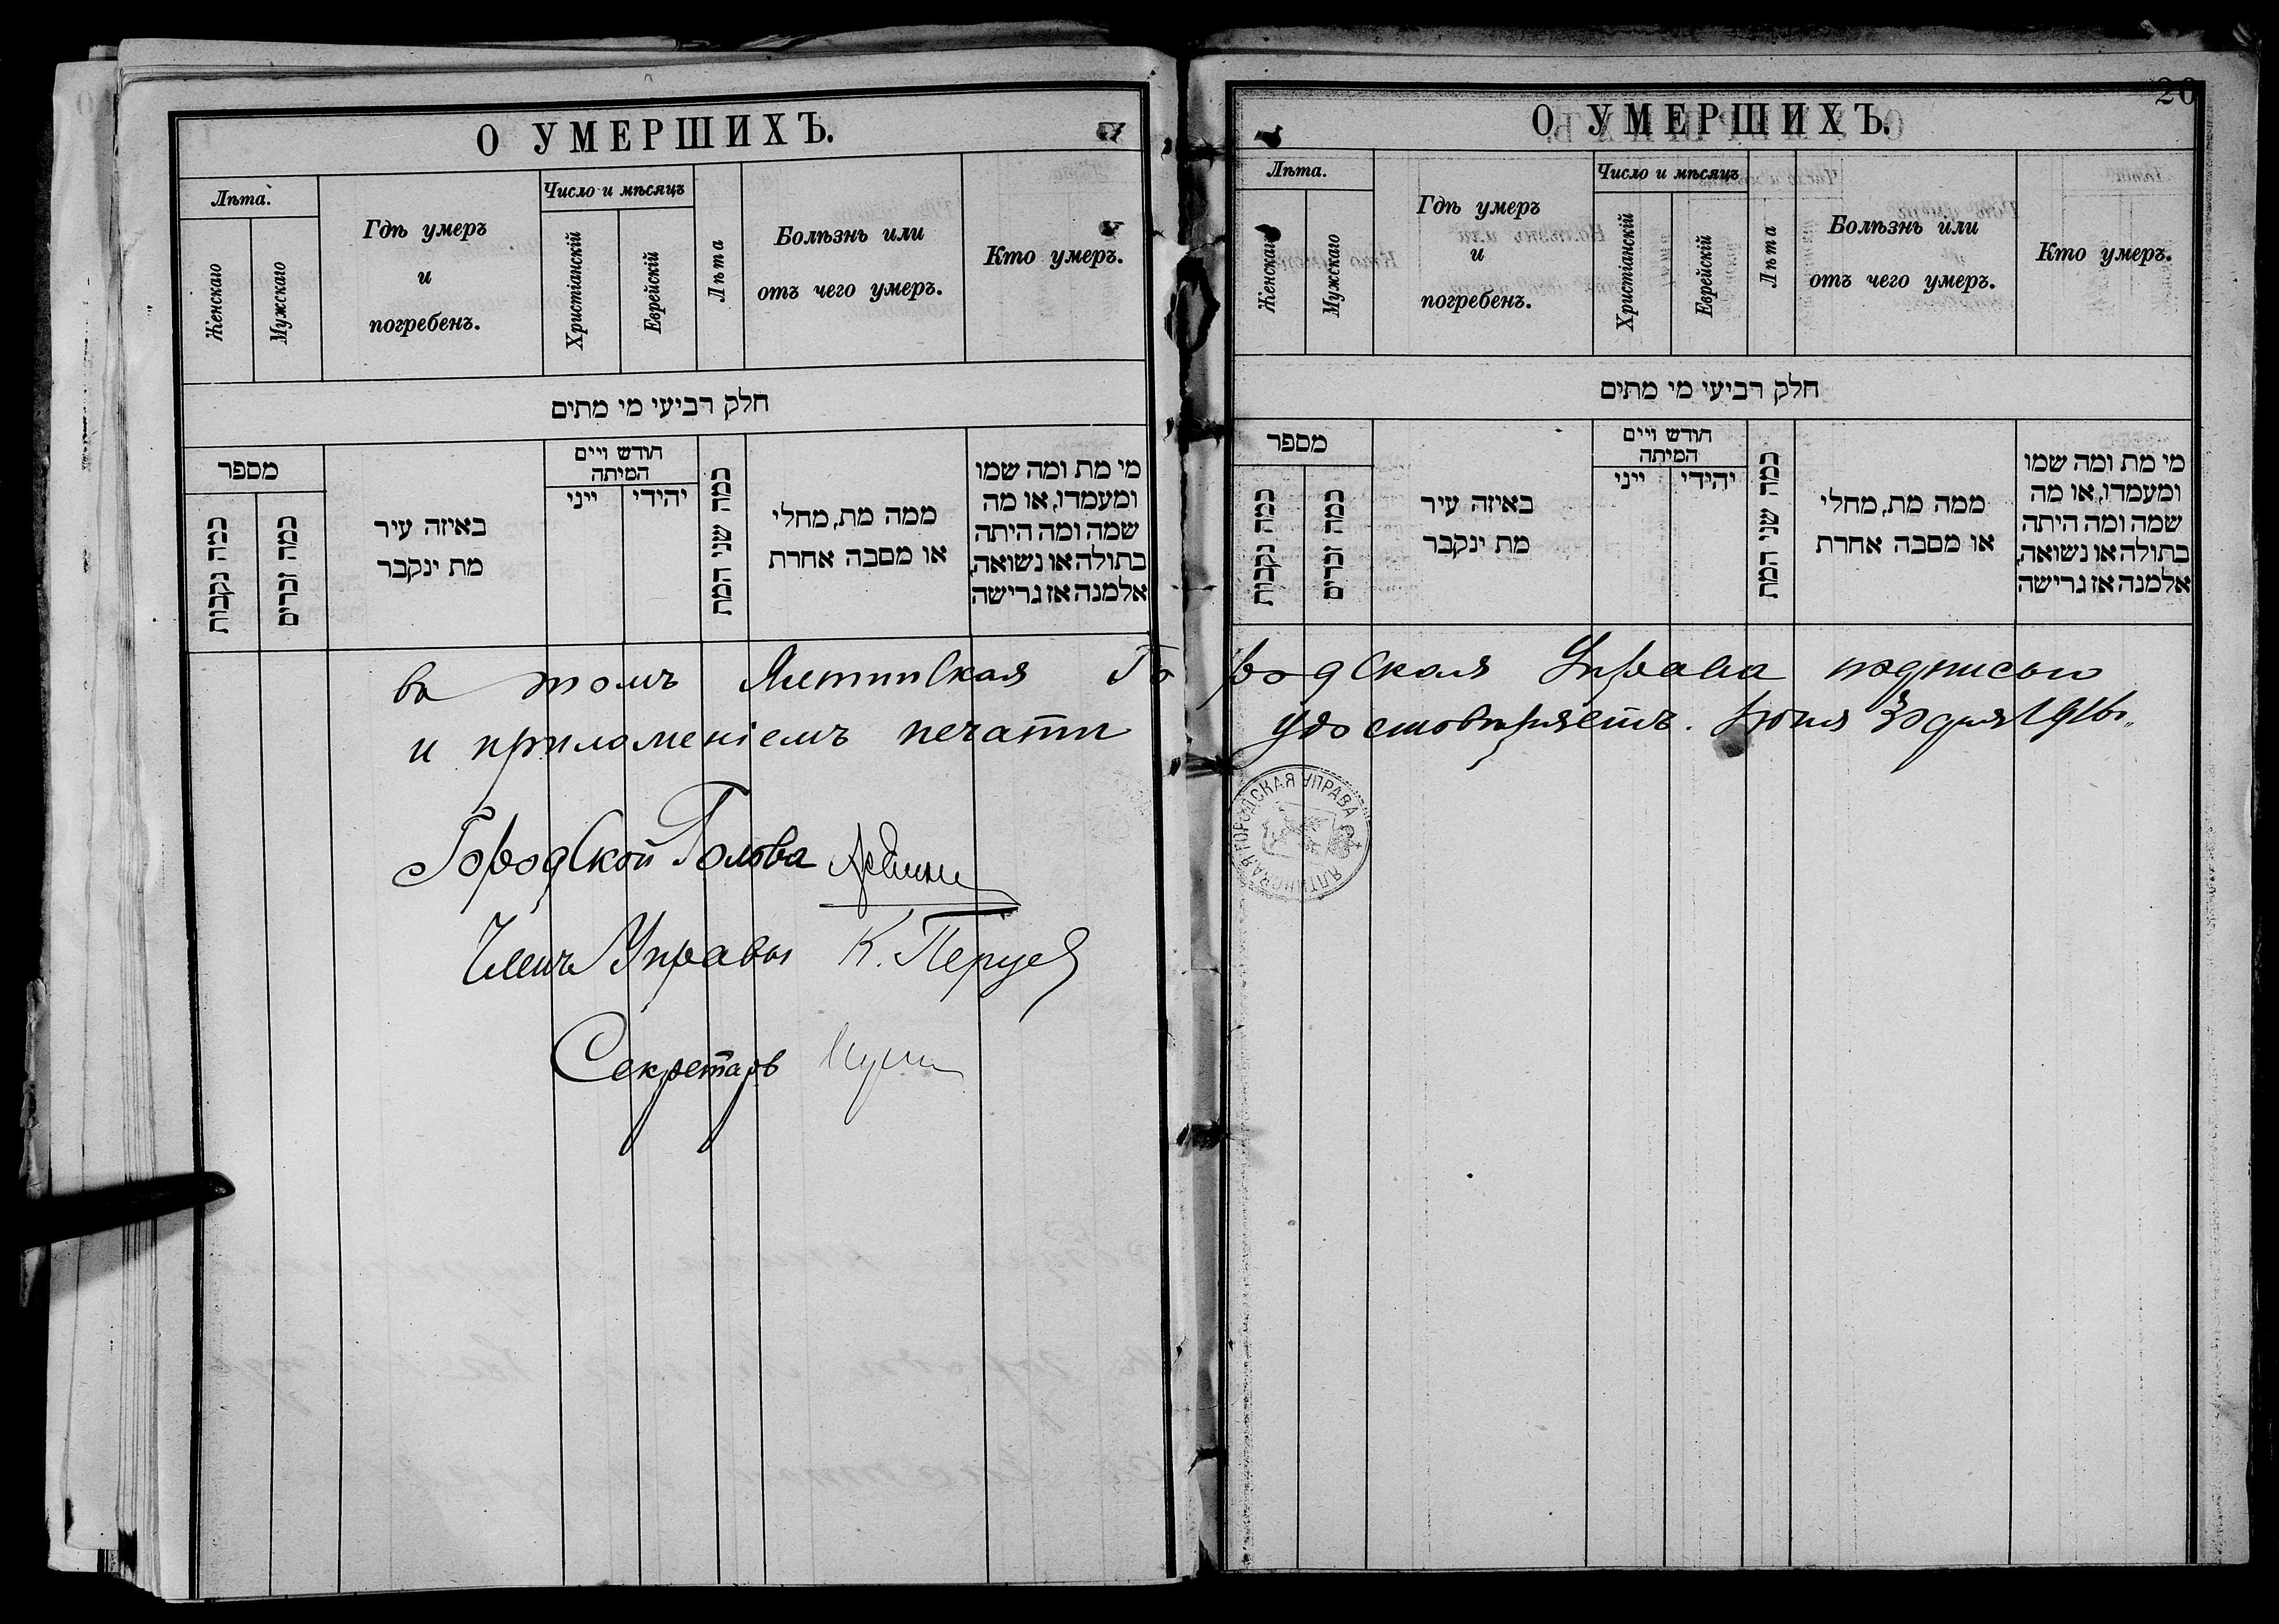 О УМЕРШИХЪ.
Лѣта.
Женскаго
Мужскаго
Гдѣ умеръ
и
погребенъ.
Число и мѣсяцъ
Христіанскій
Еврейскій
Лѣта
Болѣзнь или
отъ чего умеръ.
Кто умеръ.
חלק רביעי מי מתים
מספר
כמה נקבות
כמה זכרים
באיזה עיר
מת ינקבר
חודש ויים
המיתה
ייני
יהידי
כמה שני המת
ממה מת, מחלי
או מסבה אחרת
מי מת ומה שמו
ומעמדו, או מה
שמה ומה היתה
בתולה או נשואה,
אלמנה אז גרישה
въ томъ Ялтинская Го
и приложеніемъ печати
Городской Голова
Членъ Управы К.
Секретарь
20
О УМЕРШИХЪ.
Лѣта.
Женскаго
Мужскаго
Гдѣ умеръ
и
погребенъ.
Число и мѣсяцъ
Христіанскій
Еврейскій
Лѣта
Болѣзнь или
отъ чего умеръ.
Кто умеръ.
חלק רביעי מי מתים
מספר
כמה נקבות
כמה זכרים
באיזה עיר
מת ינקבר
חודש ויים
המיתה
ייני
יהידי
כמה שני המת
ממה מת, מחלי
או מסבה אחרת
מי מת ומה שמו
ומעמדו, או מה
שמה ומה היתה
בתולה או נשואה,
אלמנה אז גרישה
родская Управа подписью
удостовѣряетъ. Іюня 30 дня
ЯЛТИНСКАЯ ГОРОДСКАЯ УПРАВА